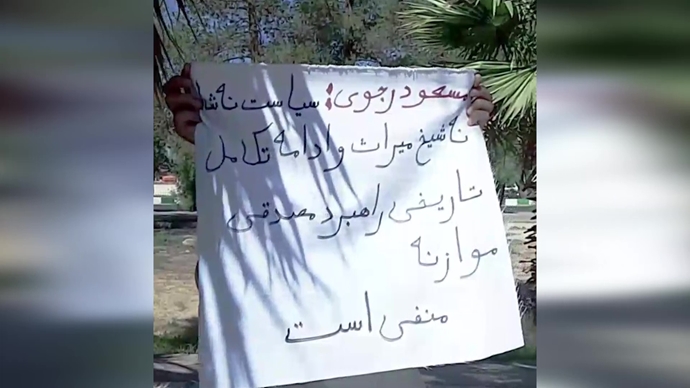 مسعود رجوی: سیاست نه شاه
نه شیخ میراث و ادامه تکامل
تاریخی راهبرد مصدقی
موازنه
منفی است